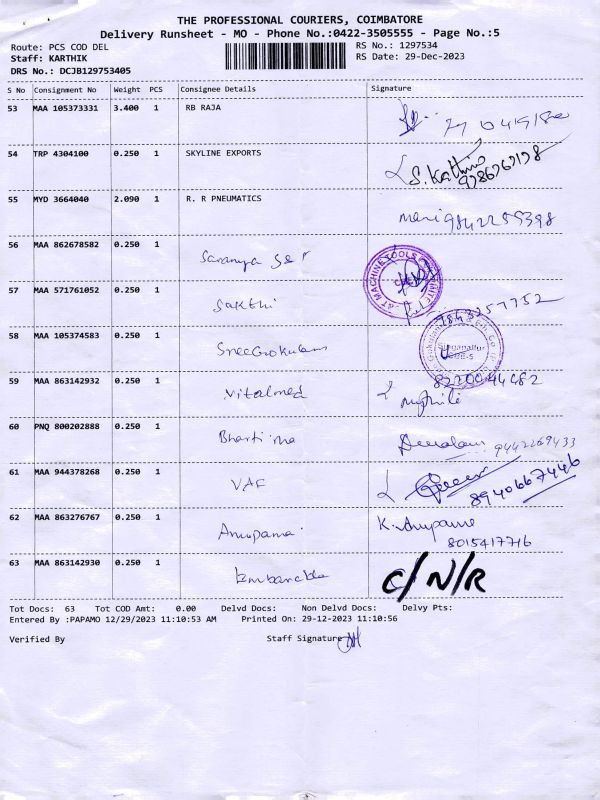 THE PROFESSIONAL COURIERS, COIMBATORE
Delivery Runsheet - MO - Phone No.:0422-3505555 - Page No.:5
Route: PCS COD DEL RS No.: 1297534
Staff: KARTHIK RS Date: 29-Dec-2023
DRS No.: DCJB129753405
S No Consignment No Weight PCS Consignee Details Signature
53 MAA 105373331 3.400 1 RB RAJA
54 TRP 4304100 0.250 1 SKYLINE EXPORTS S. Kathir
55 MYD 3664040 2.090 1 R. R PNEUMATICS mani 9842255398
56 MAA 862678582 0.250 1 Saranya
57 MAA 571761052 0.250 1 Sakthi 7843257752
58 MAA 105374583 0.250 1 Sree Gokulam
59 MAA 863142932 0.250 1 Vitalmed 8220044682
60 PNQ 800202888 0.250 1 9442269433
61 MAA 944378268 0.250 1 8940667446
62 MAA 863276767 0.250 1 Anupama K. Anupama
8015417716
63 MAA 863142930 0.250 1 C/N/R
Tot Docs: 63 Tot COD Amt: 0.00 Delvd Docs: Non Delvd Docs: Delvy Pts:
Entered By :PAPAMO 12/29/2023 11:10:53 AM Printed On: 29-12-2023 11:10:56
Verified By Staff Signature